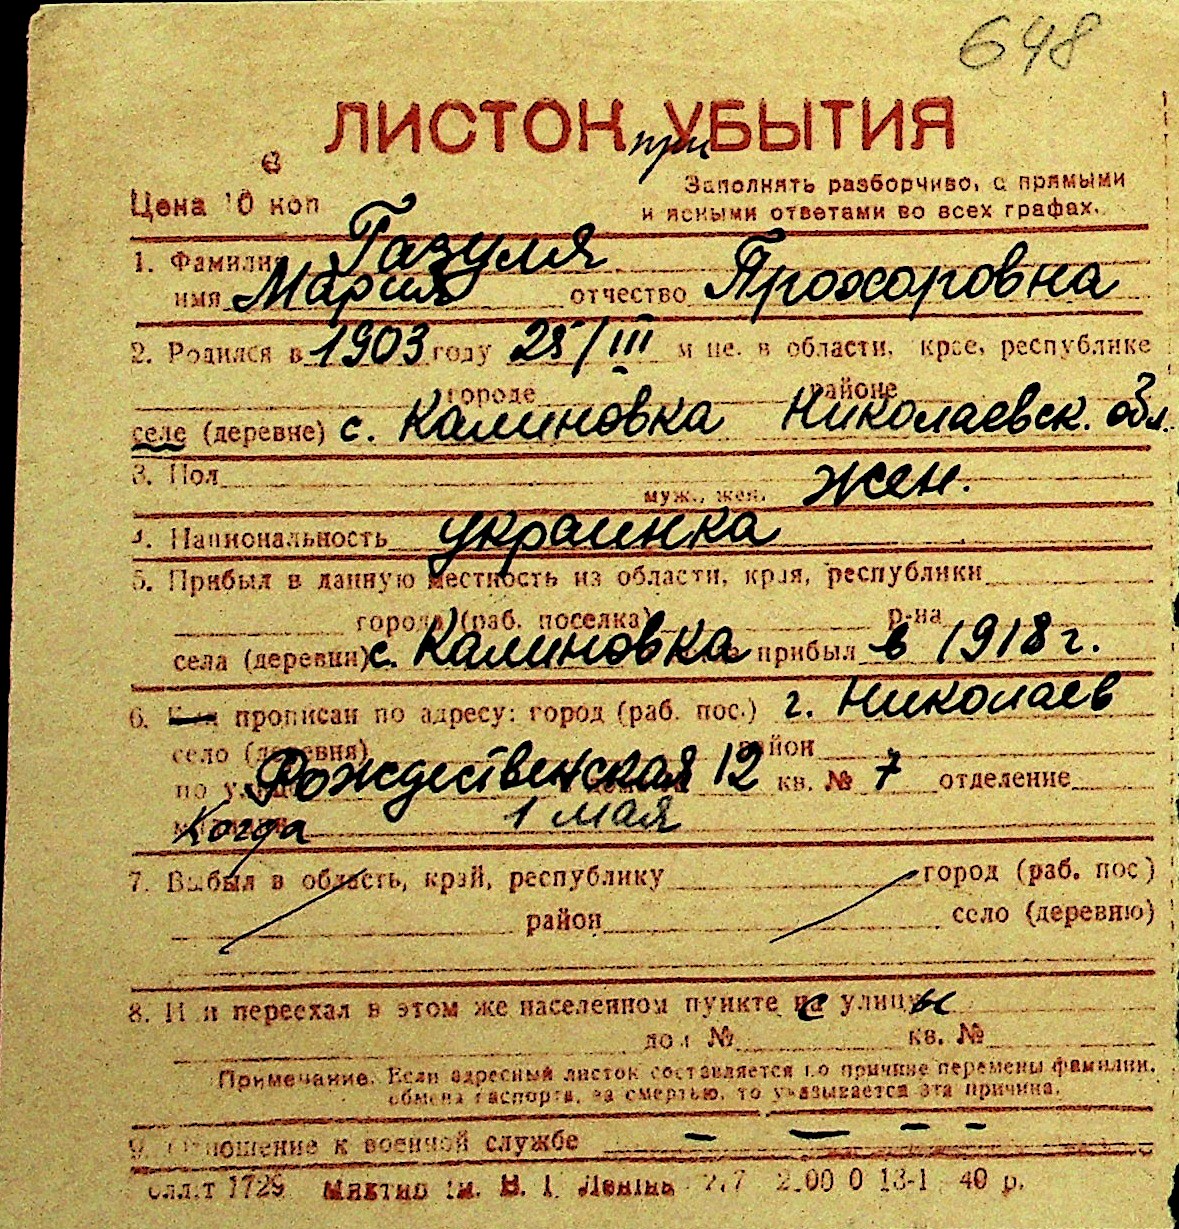 648
ЛИСТОК при УБЫТИЯ
Цена 10 коп
Заполнять разборчиво, с прямыми
и ясными ответами во всех графах.
1. Фамилия Газуля
имя Мария отчество Прохоровна
2. Родился в 1903 году 25/III м-це, в области, крае, республике
городе районе
селе (деревне) с. Калиновка Николаевск. обл.
3. Пол муж., жен. жен.
4. Национальность украинка
5. Прибыл в данную местность из области, края, республики
города (раб. поселка) р-на
села (деревни) с. Калиновка прибыл в 1918 г.
6. Был прописан по адресу: город (раб. пос.) г. Николаев
село (деревня) район
по улице Рождественская 12 кв. № 7 отделение
Когда 1 мая
7. Выбыл в область, край, республику город (раб. пос)
район село (деревню)
8. Или переехал в этом же населенном пункте на с улицу ы
дом № кв. №
Примечание. Если адресный листок составляется по причине перемены фамилии,
обмена паспорта, за смертью, то указывается эта причина.
9. Отношение к военной службе — — — —
1729 им. В. І. Леніна 2.00 0 13-1 40 р.